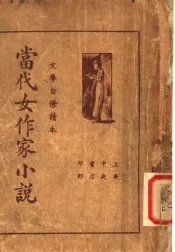 文學自修讀本
當代女作家小說
上海
中央
書店
印行